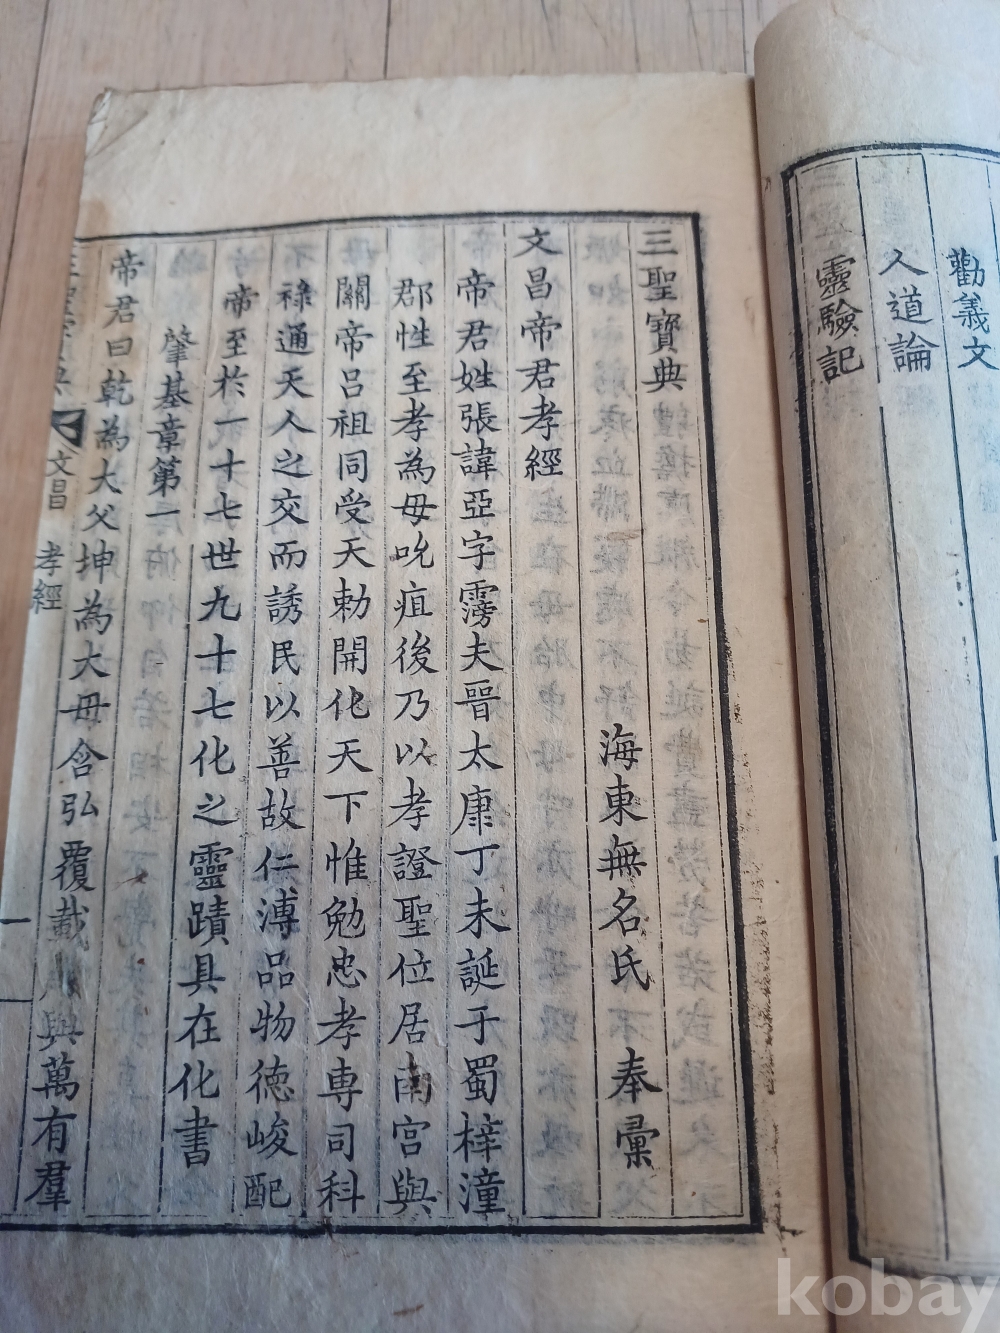 勸義文
入道論
靈驗記
三聖寶典
海東無名氏 奉彙
文昌帝君孝經
帝君姓張諱亞字霶夫晉太康丁未誕于蜀梓潼
郡性至孝為母吮疽後乃以孝證聖位居南宮與
關帝呂祖同受天勅開化天下惟勉忠孝専司科
祿通天人之交而誘民以善故仁溥品物德峻配
帝至於一十七世九十七化之靈蹟具在化書
肇基章第一
帝君曰乾為大父坤為大母含弘覆載與萬有羣
文昌孝經
一
kobay